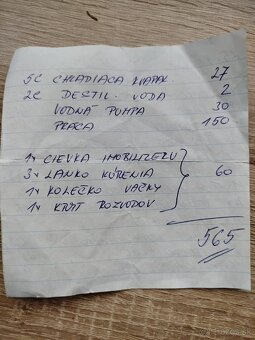 5L CHLADIACA KVAPAL. 27
2L DESTIL. VODA 2
VODNÁ PUMPA 30
PRÁCA 150
1x CIEVKA IMOBILIZERU
3x LANKO KÚRENIA 60
1x KOLEČKO VAČKY
1x KRYT ROZVODOV
565